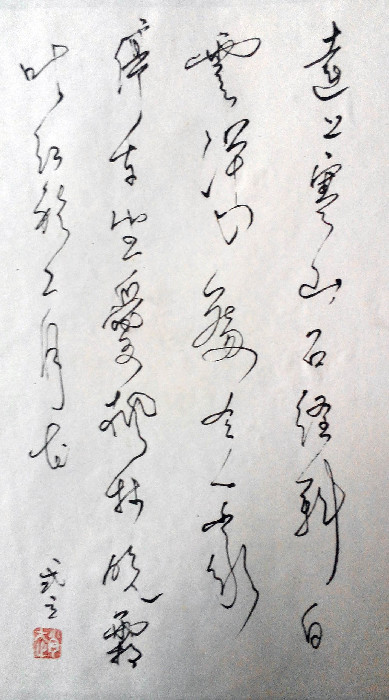 遠上寒山石徑斜白
雲深處有人家
停车坐愛楓林晚霜
叶红於二月花